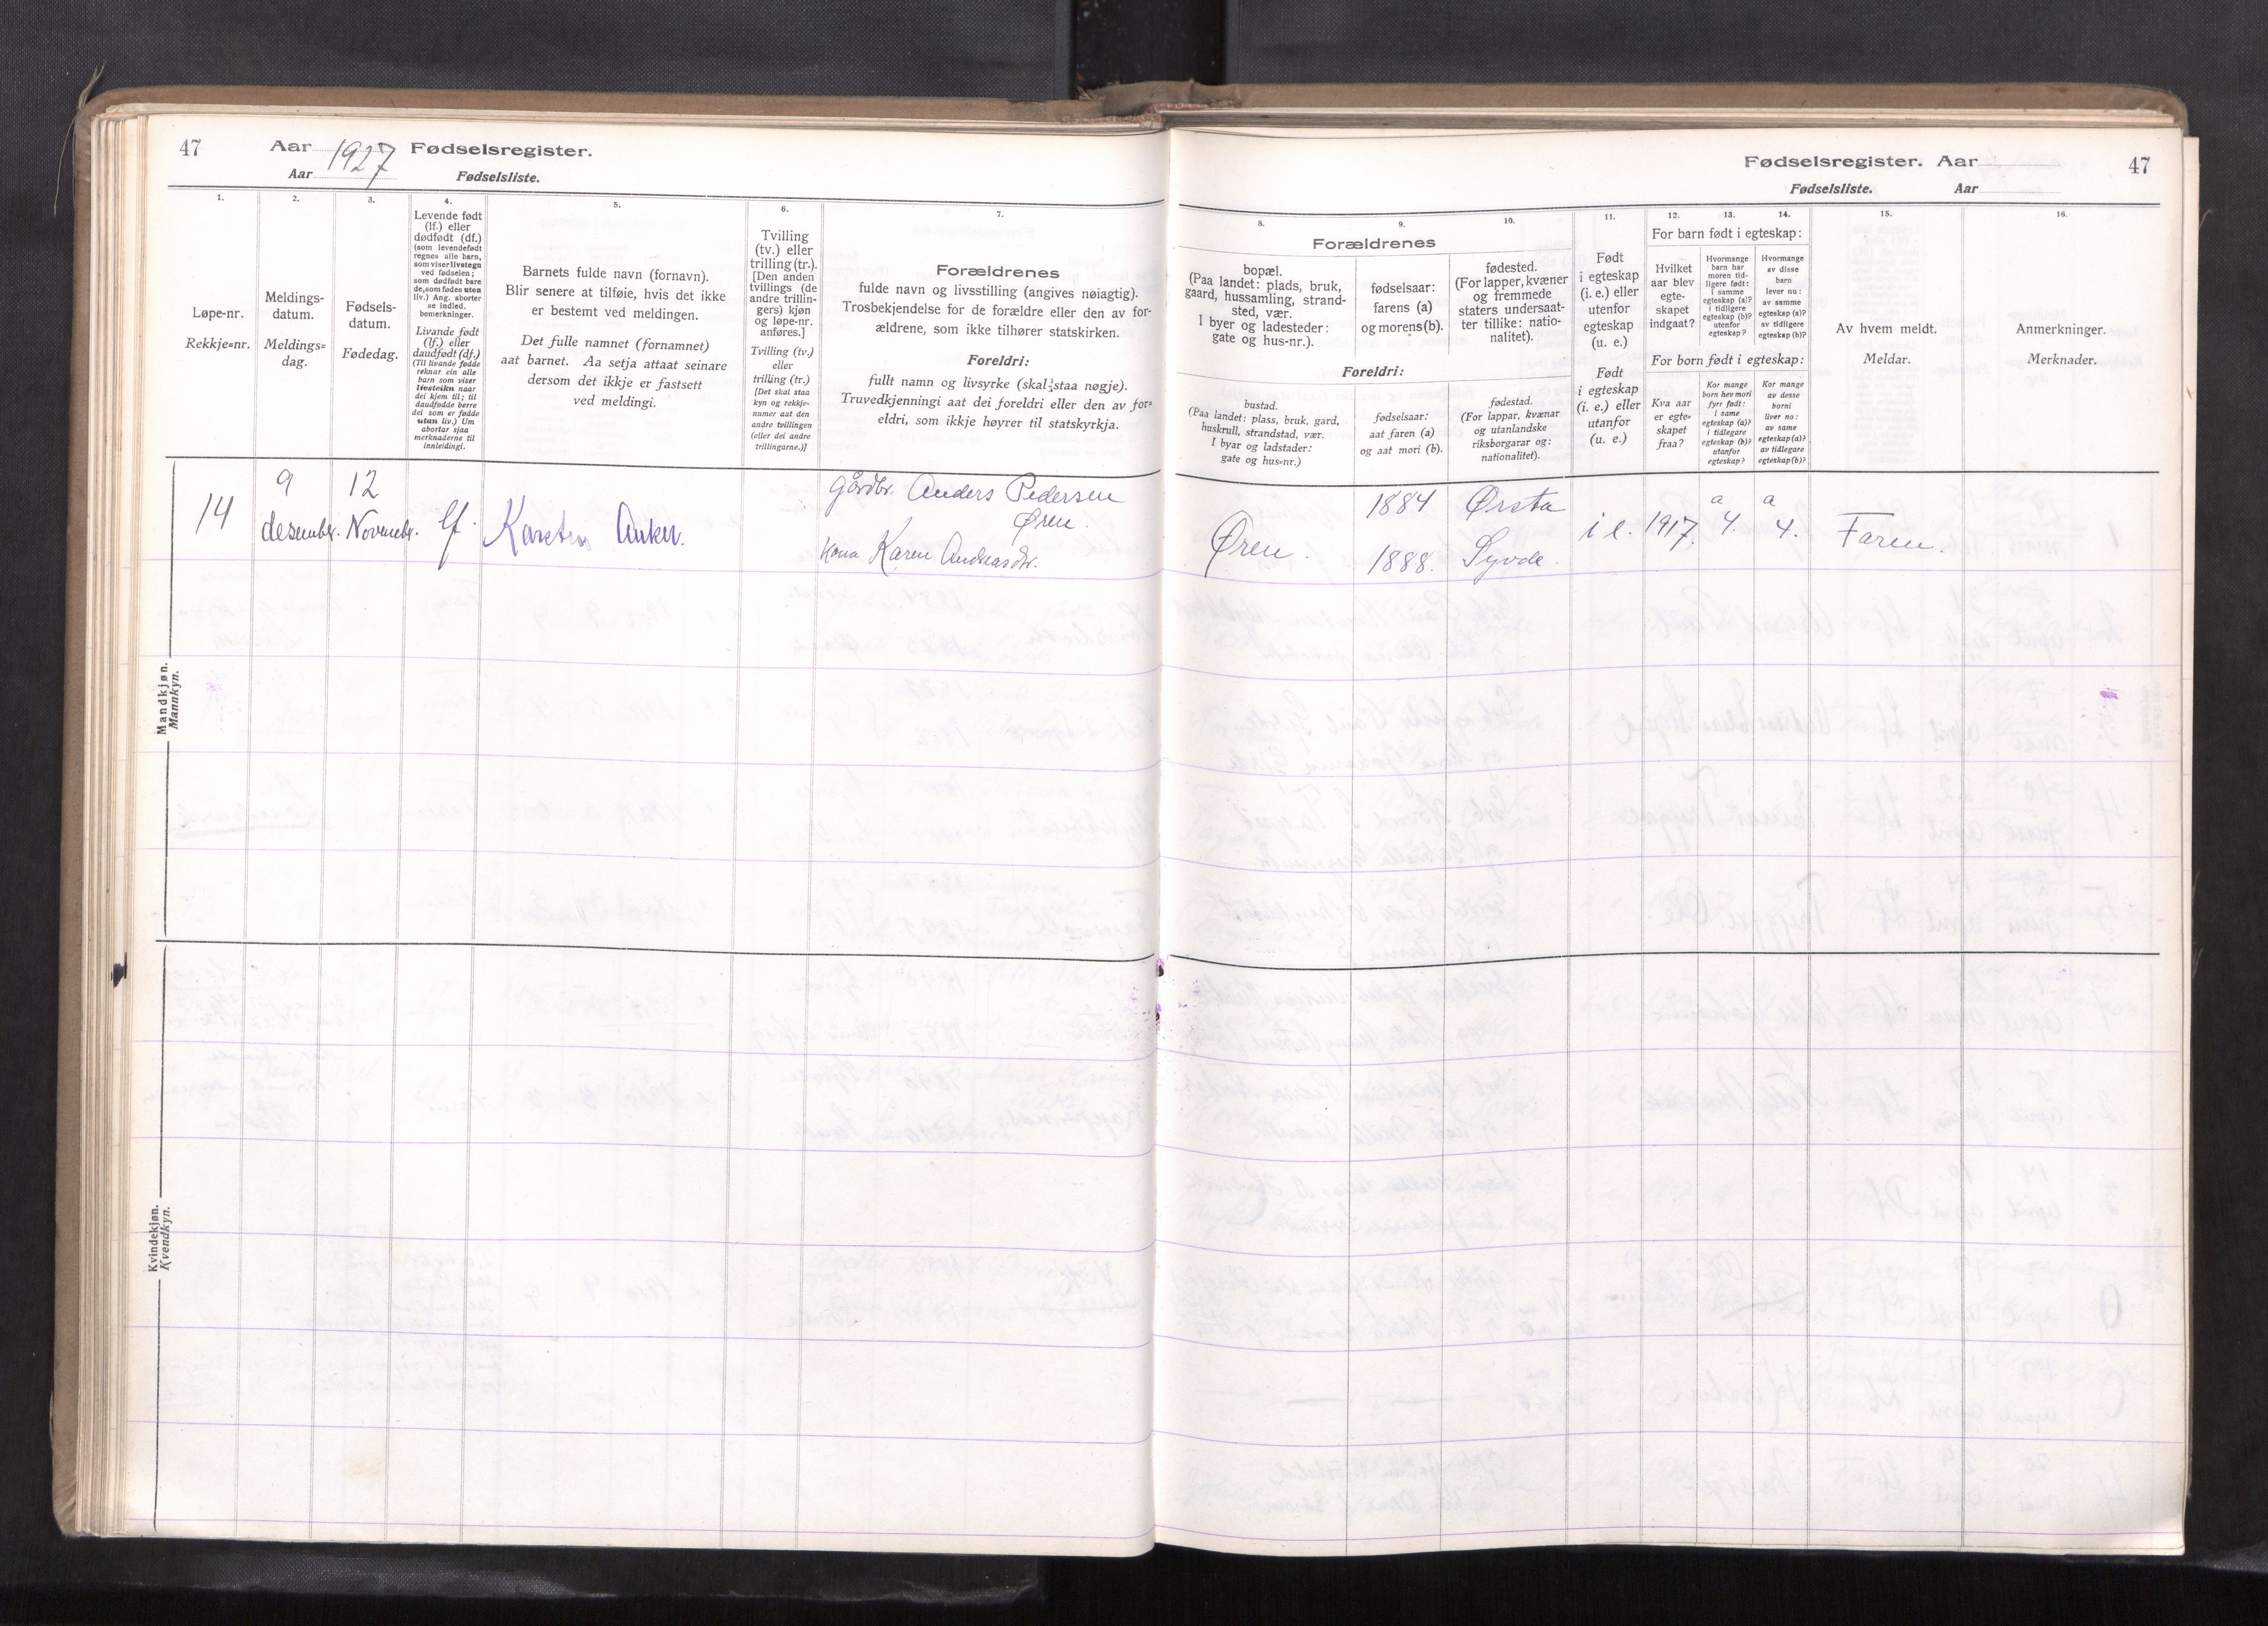 47
Aar 1927 Fødselsregister.
Aar Fødselsliste.
1.
Løpe-nr.
Rekkje=nr.
2.
Meldings-
datum.
Meldings=
dag.
3.
Fødsels-
datum.
Fødedag.
4.
Levende født
(lf.) eller
dødfødt (df.)
(som levendefødt
regnes alle barn,
som viser livstegn
ved fødselen;
som dødfødt bare
de, som fødes uten
liv.) Ang. aborter
se indled.
bemerkninger.
Livande født
(lf.) eller
daudfødt (df.)
(Til livande fødde
reknar ein alle
barn som viser
livsteikn naar
dei kjem til; til
daudfødde berre
dei som er fødde
utan liv.) Um
abortar sjaa
merknaderne til
innleidingi.
5.
Barnets fulde navn (fornavn).
Blir senere at tilføie, hvis det ikke
er bestemt ved meldingen.
Det fulle namnet (fornamnet)
aat barnet. Aa setja attaat seinare
dersom det ikkje er fastsett
ved meldingi.
6.
Tvilling
(tv.) eller
trilling (tr.).
[Den anden
tvillings (de
andre trillin-
gers) kjøn
og løpe-nr.
anføres.]
Tvilling (tv.)
eller
trilling (tr.)
[Det skal staa
kyn og rekkje-
numer aat den
andre tvillingen
(eller dei andre
trillingarne.)]
7.
Forældrenes
fulde navn og livsstilling (angives nøiagtig).
Trosbekjendelse for de forældre eller den av for-
ældrene, som ikke tilhører statskirken.
Foreldri:
fullt namn og livsyrke (skal staa nøgje).
Truvedkjenningi aat dei foreldri eller den av for=
eldri, som ikkje høyrer til statskyrkja.
Mandkjøn.
Mannkyn.
14
9
desembr.
12
Novembr.
lf.
Karsten Anker.
Gårdbr. Anders Pedersen
Øren.
Kona Karen Andreasdtr.
Kvindekjøn.
Kvendkyn.
Fødselsregister. Aar
47
Fødselsliste. Aar
8.
9.
10.
Forældrenes
bopæl.
(Paa landet: plads, bruk,
gaard, hussamling, strand-
sted, vær.
I byer og ladesteder:
gate og hus-nr.).
fødselsaar:
farens (a)
og morens (b).
fødested.
(For lapper, kvæner
og fremmede
staters undersaat-
ter tillike: natio-
nalitet).
Foreldri:
bustad.
(Paa landet: plass, bruk, gard,
huskrull, strandstad, vær.
I byar og ladstader:
gate og hus=nr.)
fødselsaar:
aat faren (a)
og aat mori (b).
fødestad.
(For lappar, kvænar
og utanlandske
riksborgarar og:
nationalitet).
11.
Født
i egteskap
(i. e.) eller
utenfor
egteskap
(u. e.)
Født
i egteskap
(i. e.) eller
utanfor
egteskap
(u. e.)
12.
13.
14.
For barn født i egteskap:
Hvilket
aar blev
egte-
skapet
indgaat?
Hvormange
barn har
moren tid-
ligere født:
i samme
egteskap (a)?
i tidligere
egteskap (b)?
utenfor
egteskap?
Hvormange
av disse
barn
lever nu:
av samme
egteskap (a)?
av tidligere
egteskap (b)?
For born født i egteskap:
Kva aar
er egte=
skapet
fraa?
Kor mange
born hev mori
fyrr født:
i same
egteskap (a)?
i tidlegare
egteskap (b)?
utanfor
egteskap?
Kor mange
av desse
borni
liver no:
av same
egteskap (a)?
av tidlegare
egteskap (b)?
15.
Av hvem meldt.
Meldar.
16.
Anmerkninger.
Merknader.
Øren.
1884
1888.
Ørsta
Syvde.
i e.
1917.
a
4.
a
4.
Faren.